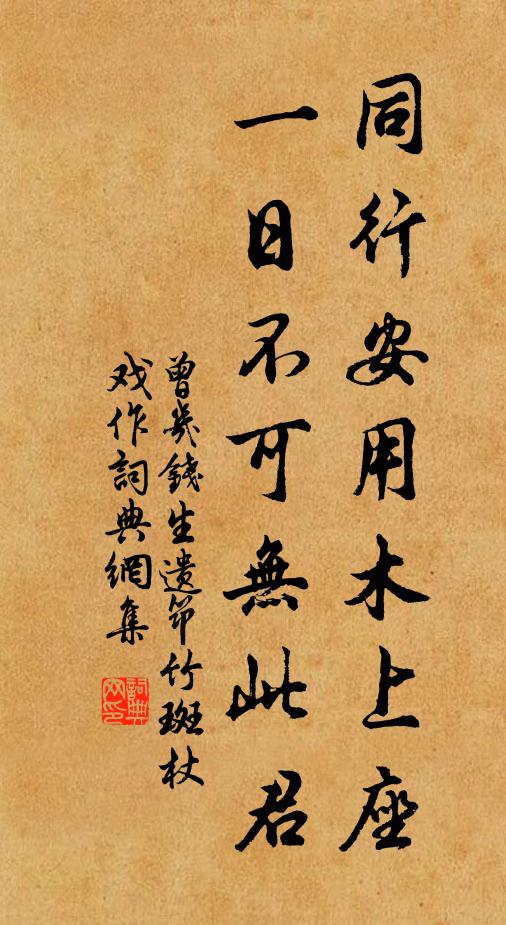 同行安用木上座
一日不可無此君
曾幾錢生遺筇竹斑杖
戏作詞典網集
詞典网印